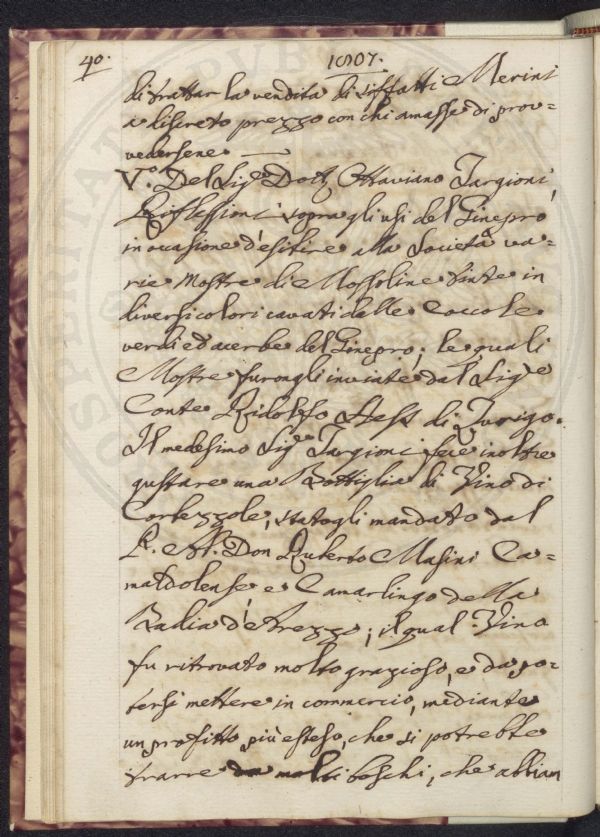 40.
1807.
di trattar la vendita di siffatti Merini
a discreto prezzo con chi amasse di prov=
vedersene
V.° Del Sig.e Dott. Ottaviano Targioni,
Riflessioni sopra gli usi del Ginepro
in occasione d'esibire alla Società va=
rie Mostre di Mossoline tinte in
diversi colori cavati dalle Coccole
verdi ed acerbe del Ginepro; le quali
Mostre furongli inviate dal Sig.e
Conte Ridolfo di Zurigo.
Il medesimo Sig.e Targioni fece inoltre
gustare una Bottiglia di Vino di
Corbezzole, statogli mandato dal
P. Ab. Don Ruberto Masini Ca=
maldolense e Camarlingo della
Badia d'Arezzo; il qual Vino
fu ritrovato molto grazioso, e da po=
tersi mettere in commercio, mediante
un profitto più esteso, che si potrebbe
trarre da molti boschi, che abbian